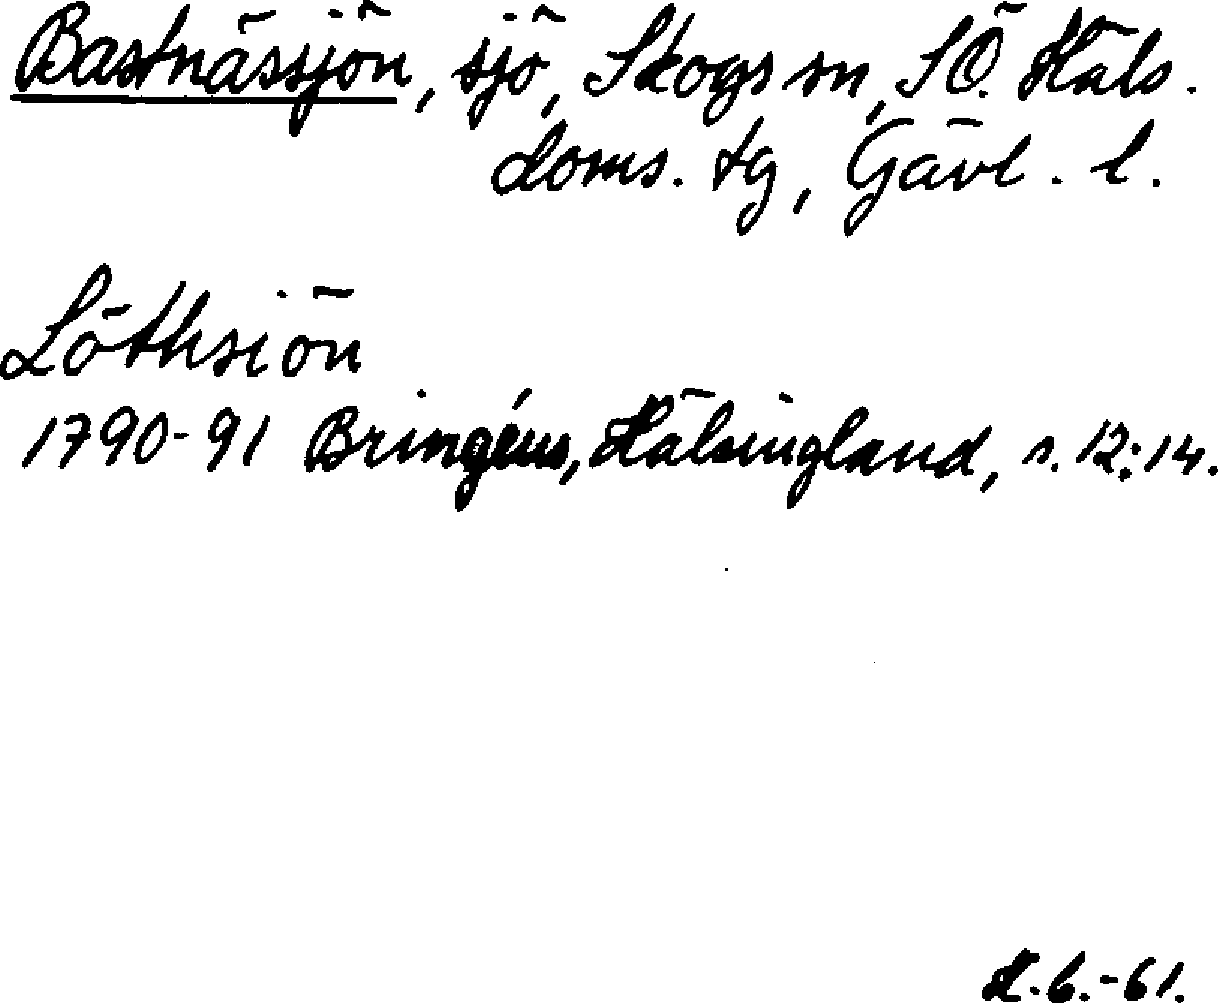 Bastnässjön, sjö, Skogs sn, SÖ. Häls.
doms. tg, Gävl. l.
Löthsiön
1790-91 Bringéus, Hälsingland, s. 12:14.
H.b.-61.